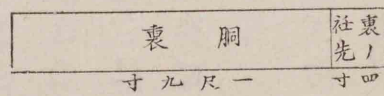 裏ノ
衽先
胴裏
四寸
一尺九寸